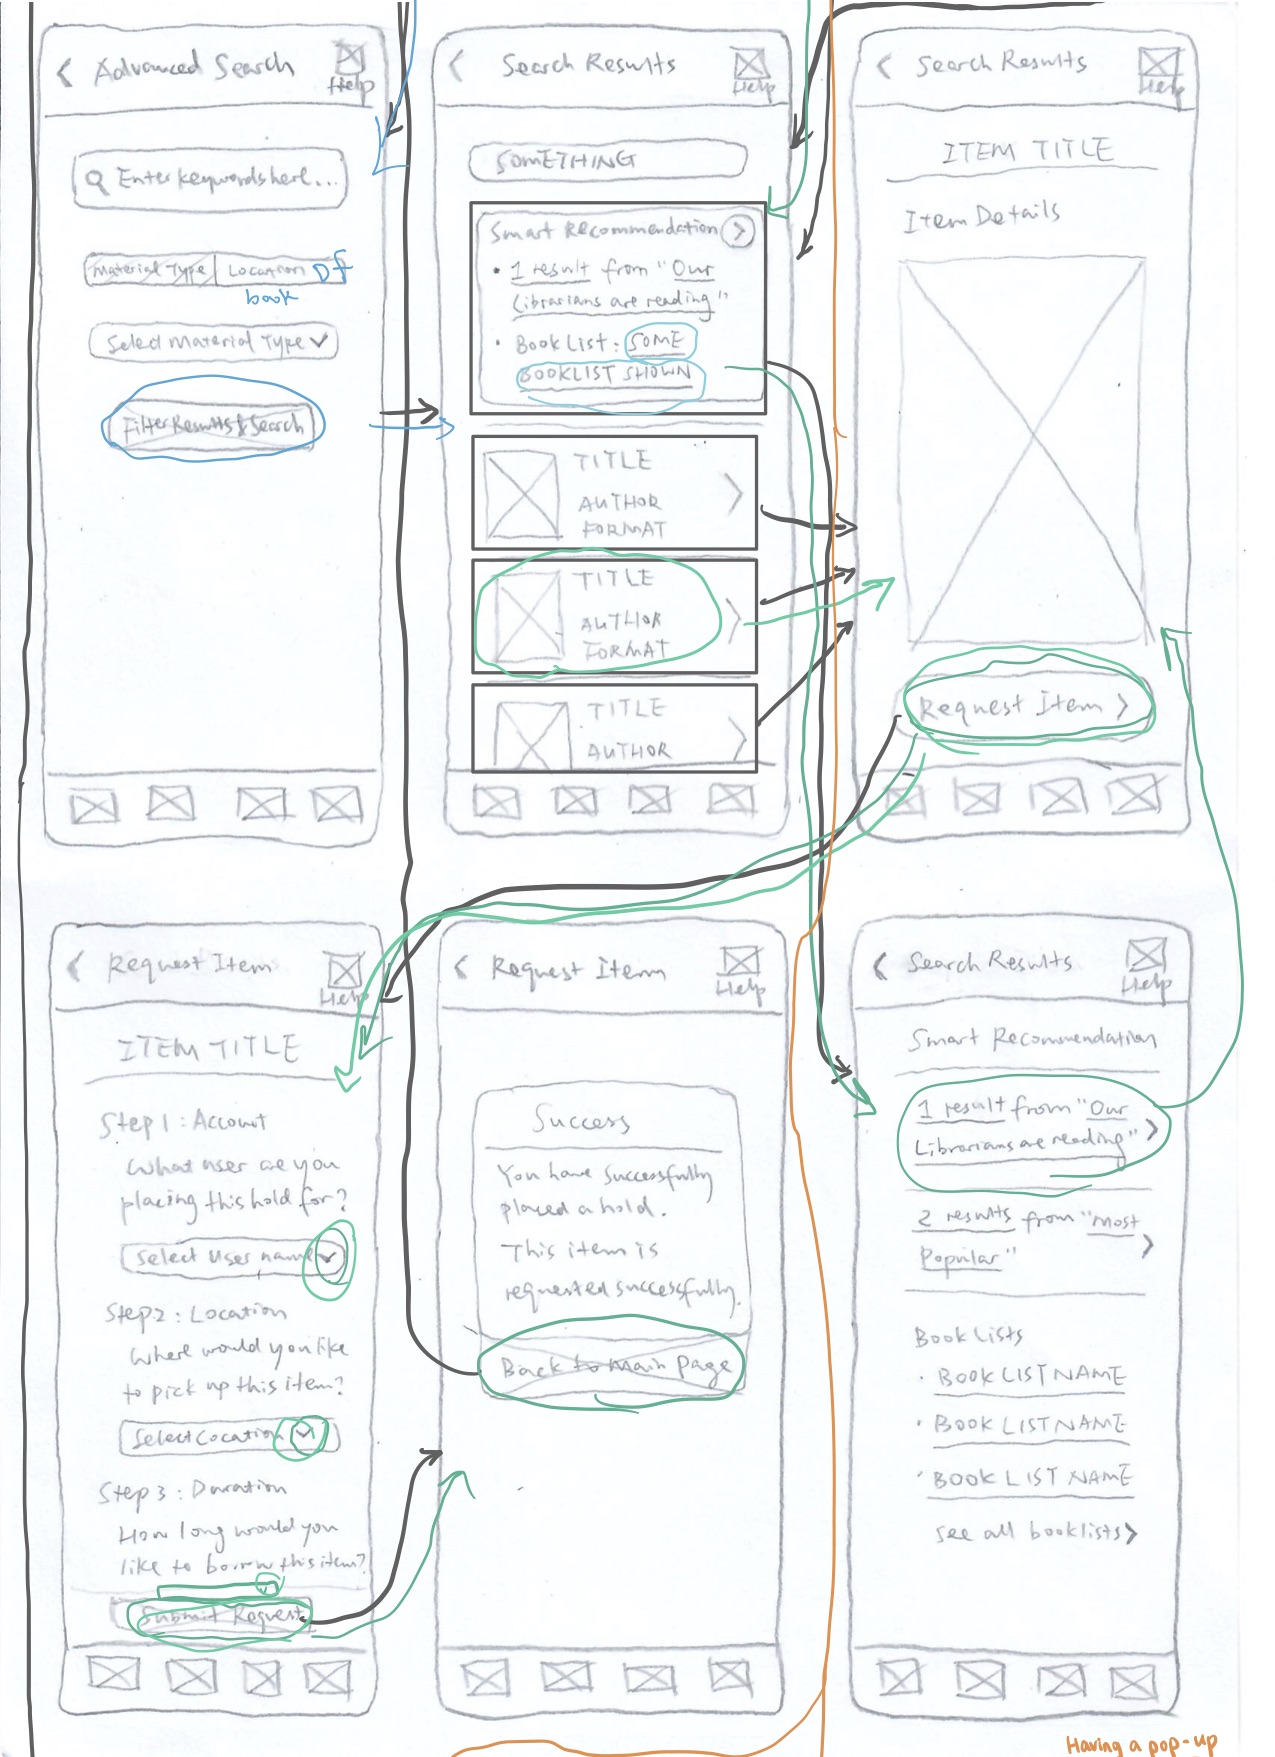 Advanced Search
Help
Enter keywords here...
Material Type
Location
of
book
Select Material Type
Filter Results & Search
Search Results
Help
SOMETHING
Smart Recommendation
• 1 result from "Our
Librarians are reading"
• Book List: SOME
BOOKLIST SHOWN
TITLE
AUTHOR
FORMAT
TITLE
AUTHOR
FORMAT
TITLE
AUTHOR
Search Results
Help
ITEM TITLE
Item Details
Request Item >
Request Item
Help
ITEM TITLE
Step 1: Account
What user are you
placing this hold for?
Select User name
Step 2: Location
Where would you like
to pick up this item?
Select Location
Step 3: Duration
How long would you
like to borrow this item?
Submit Request
Request Item
Help
Success
You have successfully
placed a hold.
This item is
requested successfully.
Back to Main Page
Search Results
Help
Smart Recommendation
1 result from "Our
Librarians are reading" >
2 results from "Most
Popular" >
Book Lists
• BOOK LIST NAME
• BOOK LIST NAME
• BOOK LIST NAME
see all booklists >
Having a pop-up